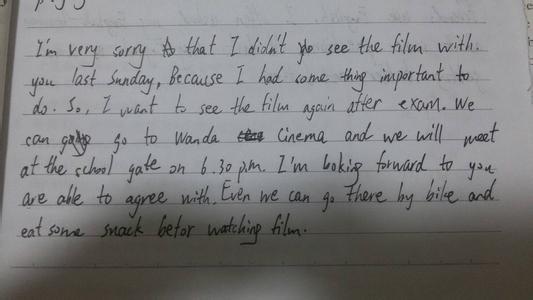 I'm very sorry that I didn't see the film with
you last Sunday, Because I had some thing important to
do. So, I want to see the film again after exam. We
can go to Wanda Cinema and we will meet
at the school gate on 6.30 p.m. I'm loking forward to you
are able to agree with. Even we can go there by bike and
eat some snack befor watching film.